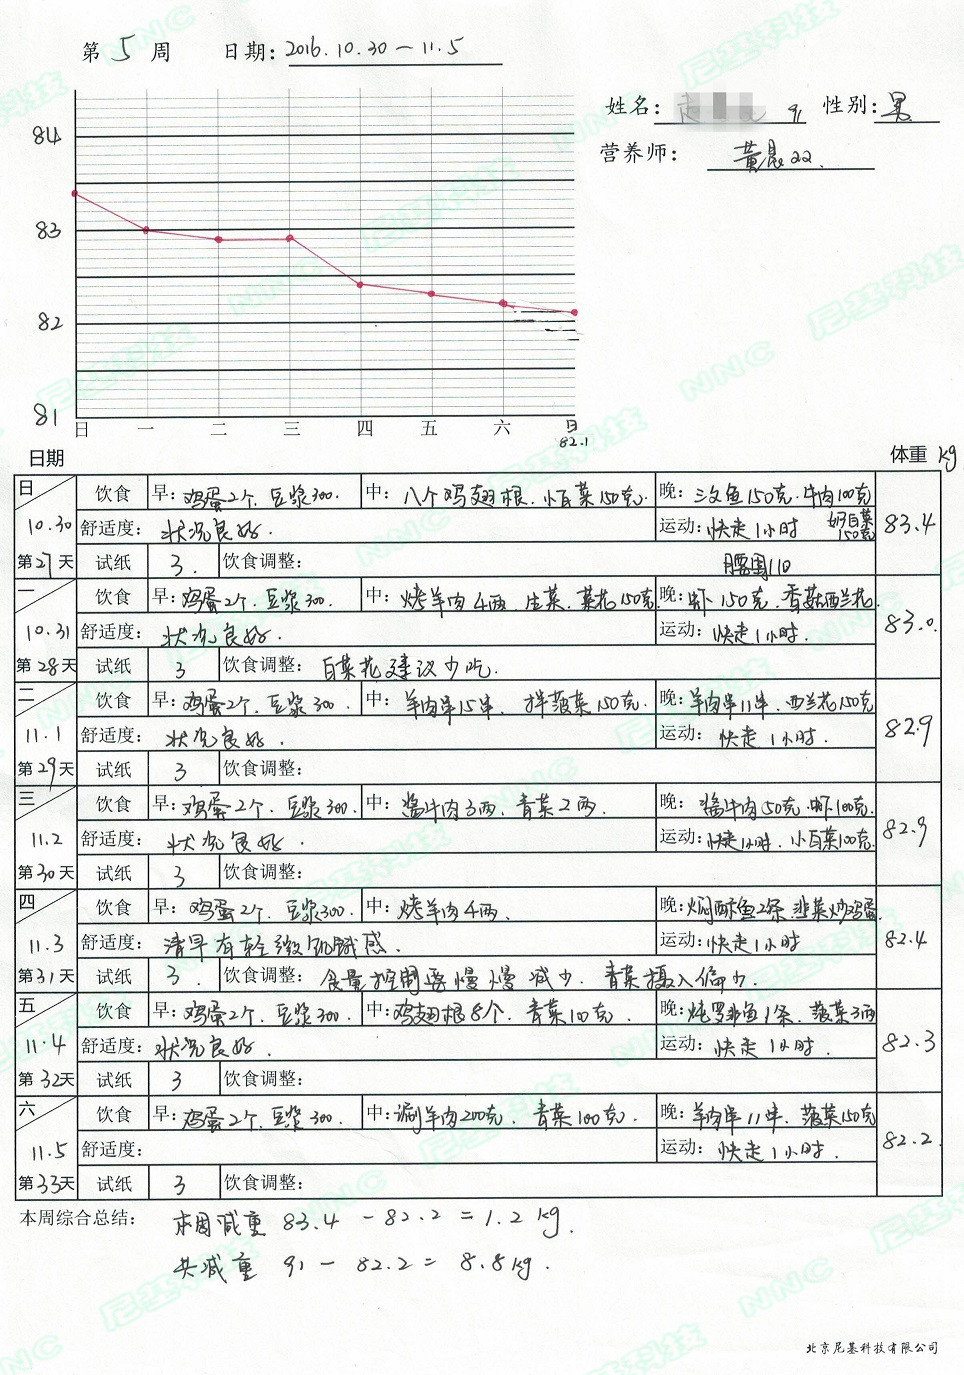 第 5 周 日期: 2016.10.30 — 11.5
姓名: 91 性别: 男
营养师: 黄晨22.
84
83
82
81
日 一 二 三 四 五 六 日
82.1
日期 体重 kg
日 饮食 早: 鸡蛋2个. 豆浆300. 中: 八个鸡翅根. 小白菜150克. 晚: 三文鱼150克. 牛肉100克
10.30 舒适度: 状况良好. 运动: 快走1小时 奶白菜150克 83.4
第27天 试纸 3. 饮食调整: 腰围110
一 饮食 早: 鸡蛋2个. 豆浆300. 中: 烤羊肉4两. 生菜. 菜花150克 晚: 虾150克. 香菇西兰花.
10.31 舒适度: 状况良好. 运动: 快走1小时. 83.0.
第28天 试纸 3 饮食调整: 白菜花建议少吃.
二 饮食 早: 鸡蛋2个. 豆浆300. 中: 羊肉串15串. 拌菠菜150克. 晚: 羊肉串11串. 西兰花150克
11.1 舒适度: 状况良好. 运动: 快走1小时. 82.9
第29天 试纸 3 饮食调整:
三 饮食 早: 鸡蛋2个. 豆浆300. 中: 酱牛肉3两. 青菜2两. 晚: 酱牛肉50克. 虾100克.
11.2 舒适度: 状况良好. 运动: 快走1小时. 小白菜100克. 82.9
第30天 试纸 3 饮食调整:
四 饮食 早: 鸡蛋2个. 豆浆300. 中: 烤羊肉4两. 晚: 焖酥鱼2条. 韭菜炒鸡蛋.
11.3 舒适度: 清早有轻微饥饿感. 运动: 快走1小时 82.4
第31天 试纸 3. 饮食调整: 食量控制要慢慢减少. 青菜摄入偏少.
五 饮食 早: 鸡蛋2个. 豆浆300. 中: 鸡翅根8个. 青菜100克. 晚: 炖罗非鱼1条. 菠菜3两
11.4 舒适度: 状况良好. 运动: 快走1小时. 82.3
第32天 试纸 3 饮食调整:
六 饮食 早: 鸡蛋2个. 豆浆300. 中: 涮羊肉200克. 青菜100克. 晚: 羊肉串11串. 菠菜150克
11.5 舒适度: 运动: 快走1小时. 82.2.
第33天 试纸 3 饮食调整:
本周综合总结: 本周减重 83.4 - 82.2 = 1.2 kg.
共减重 91 - 82.2 = 8.8 kg.
北京尼基科技有限公司